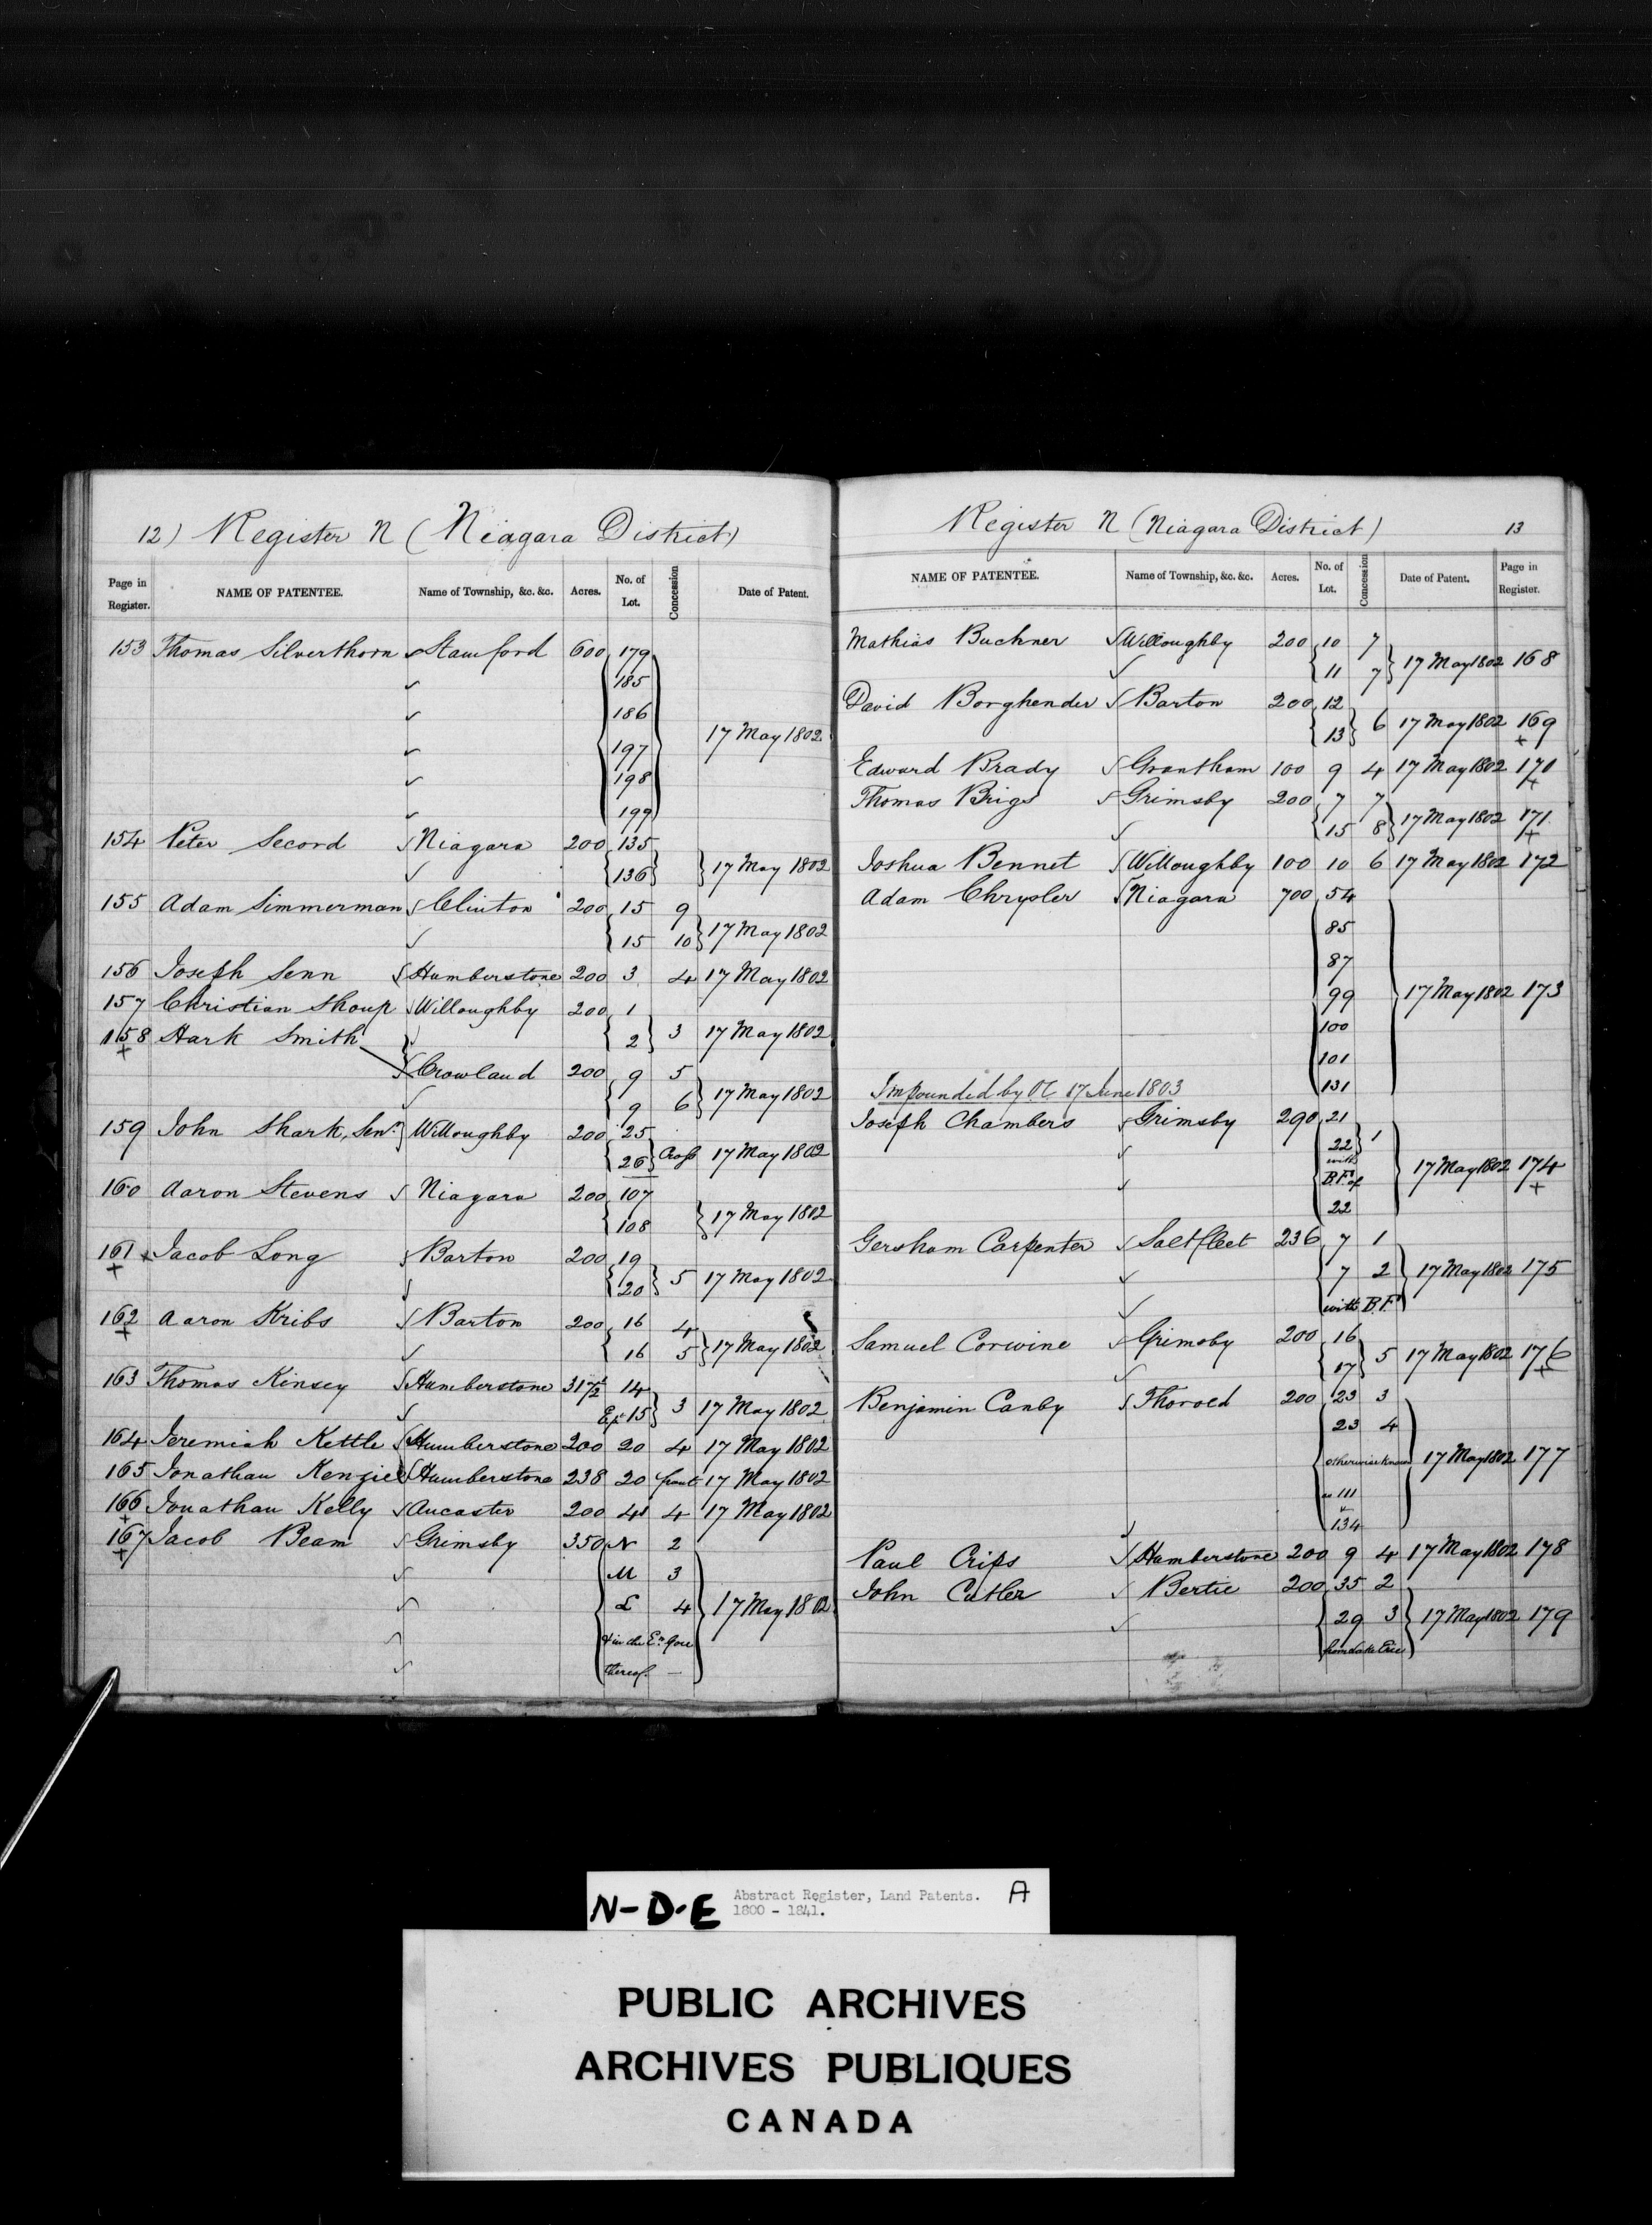 12) Register N (Niagara District)
Page in Register. NAME OF PATENTEE. Name of Township, &c. &c. Acres. No. of Lot. Concession Date of Patent.
153 Thomas Silverthorn Stamford 600 179
185
186
17 May 1802
197
198
199
154 Peter Secord Niagara 200 135
136 17 May 1802
155 Adam Simmerman Clinton 200 15 9
15 10 17 May 1802
156 Joseph Senn Humberstone 200 3 4 17 May 1802
157 Christian Shoup Willoughby 200 1
2 3 17 May 1802
158 Hark Smith
Crowland 200 9 5
9 6 17 May 1802
159 John Shark, Senr. Willoughby 200 25
26 Cross 17 May 1802
160 Aaron Stevens Niagara 200 107
108 17 May 1802
161 Jacob Long Barton 200 19
20 5 17 May 1802
162 Aaron Kribs Barton 200 16 4
16 5 17 May 1802
163 Thomas Kinsey Humberstone 317½ 14
Ept 15 3 17 May 1802
164 Jeremiah Kettle Humberstone 200 20 4 17 May 1802
165 Jonathan Kenziel Humberstone 238 20 front 17 May 1802
166 Jonathan Kelly Ancaster 200 41 4 17 May 1802
167 Jacob Beam Grimsby 350 N 2
M 3
L 4 17 May 1802
& in the En. Gore
thereof. —
Register N (Niagara District) 13
NAME OF PATENTEE. Name of Township, &c. &c. Acres. No. of Lot. Concession Date of Patent. Page in Register.
Mathias Buchner Willoughby 200 10 7
11 7 17 May 1802 168
David Borghender Barton 200 12
13 6 17 May 1802 169
Edward Brady Grantham 100 9 4 17 May 1802 170
Thomas Brigs Grimsby 200 7 7
15 8 17 May 1802 171
Joshua Bennet Willoughby 100 10 6 17 May 1802 172
Adam Chrysler Niagara 700 54
85
87
99 17 May 1802 173
100
101
131
Impounded by OC 17 June 1803
Joseph Chambers Grimsby 290 21
22 1
with
B.Ft of 17 May 1802 174
22
Gersham Carpenter Saltfleet 236 7 1
7 2 17 May 1802 175
with B.Ft
Samuel Corwine Grimsby 200 16
17 5 17 May 1802 176
Benjamin Canby Thorold 200 23 3
23 4
otherwise known 17 May 1802 177
as 111
&
134
Paul Crips Humberstone 200 9 4 17 May 1802 178
John Cutler Bertie 200 35 2
29 3 17 May 1802 179
from Lake Erie
N-D-E Abstract Register, Land Patents. A
1800 - 1841.
PUBLIC ARCHIVES
ARCHIVES PUBLIQUES
CANADA